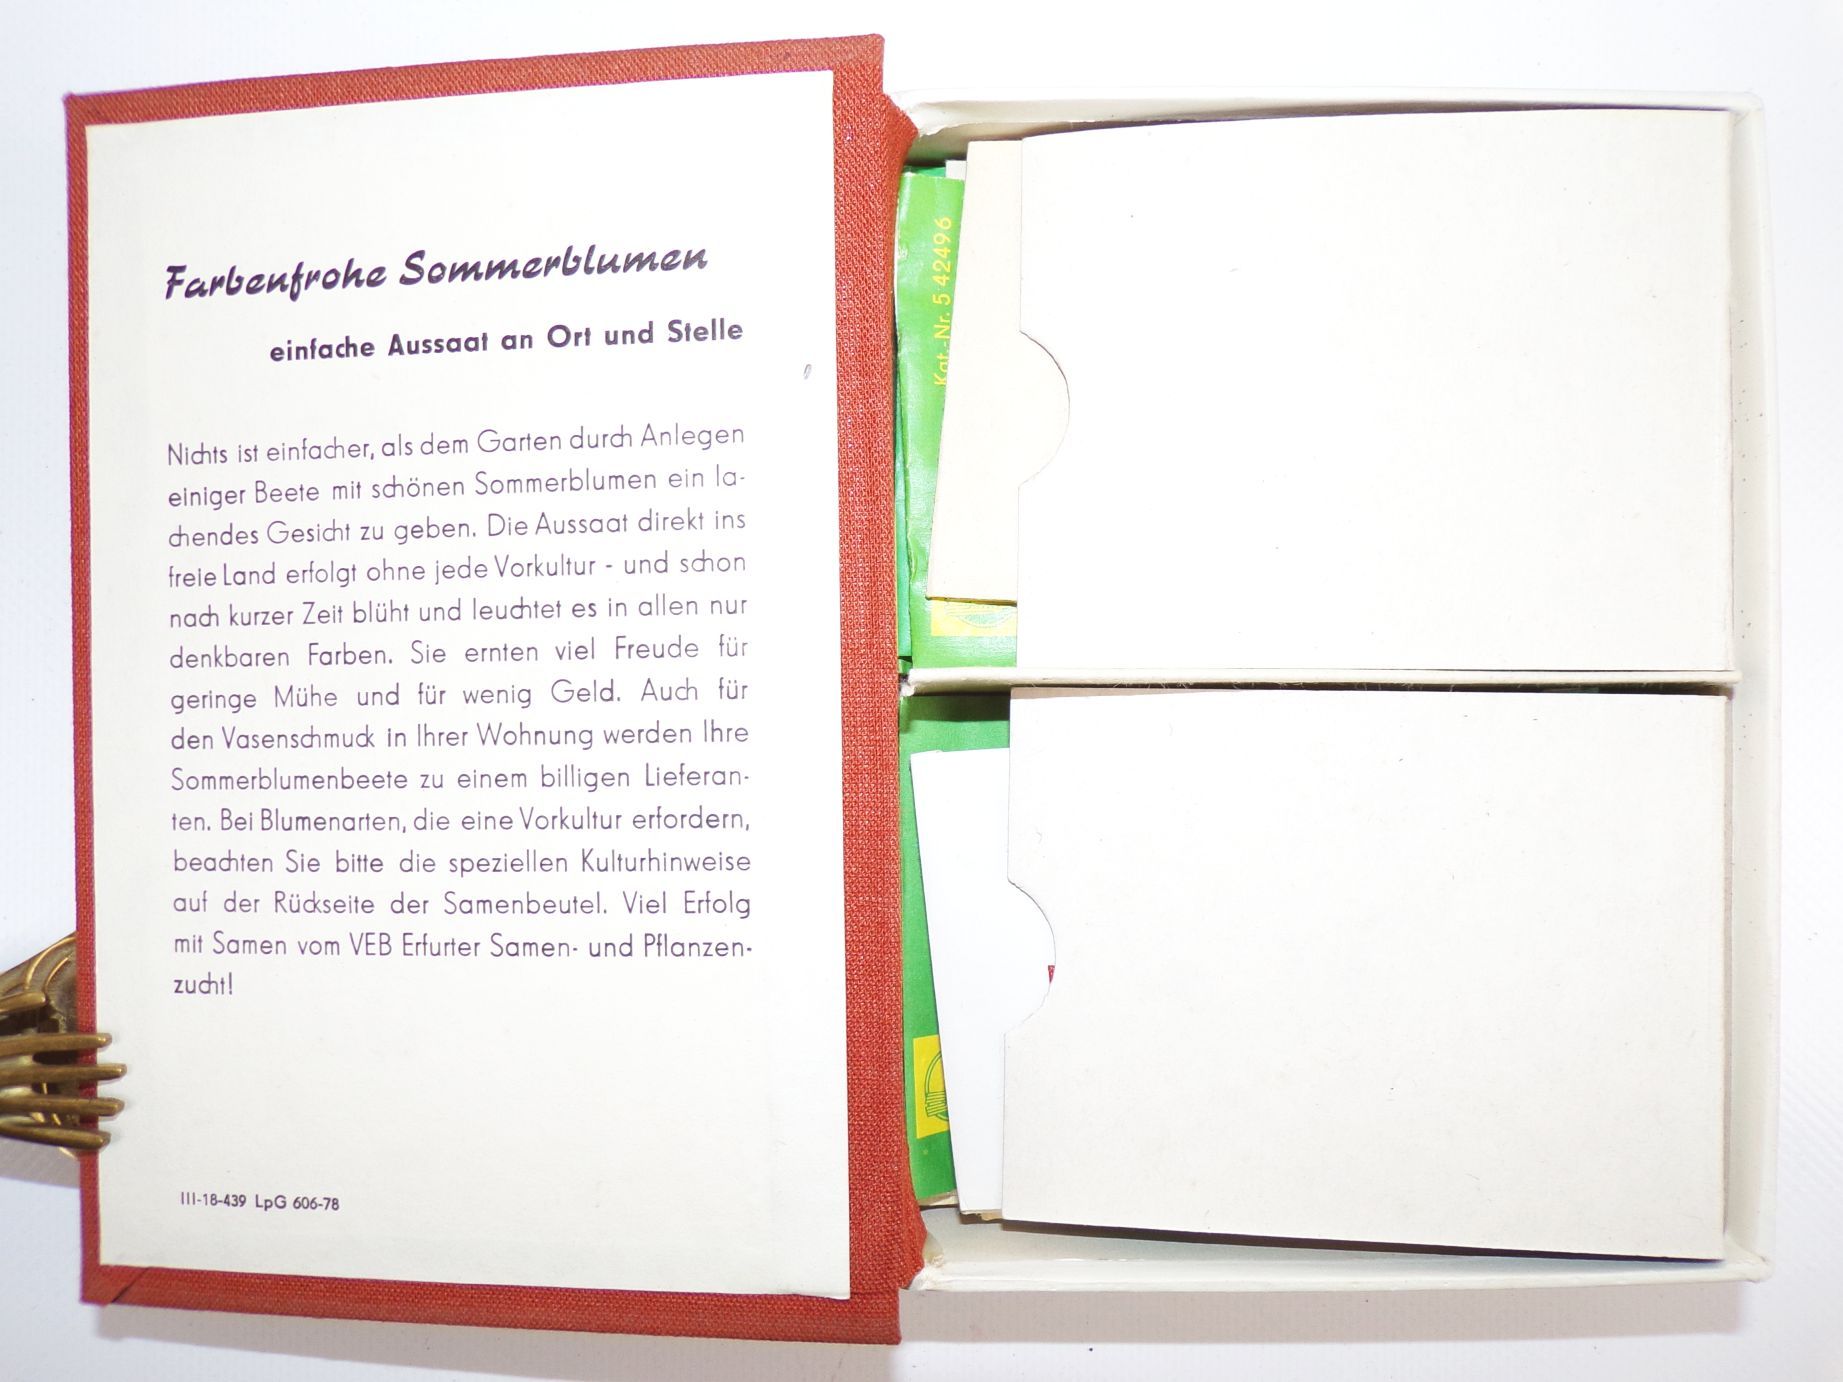 Farbenfrohe Sommerblumen
einfache Aussaat an Ort und Stelle
Nichts ist einfacher, als dem Garten durch Anlegen
einiger Beete mit schönen Sommerblumen ein la-
chendes Gesicht zu geben. Die Aussaat direkt ins
freie Land erfolgt ohne jede Vorkultur - und schon
nach kurzer Zeit blüht und leuchtet es in allen nur
denkbaren Farben. Sie ernten viel Freude für
geringe Mühe und für wenig Geld. Auch für
den Vasenschmuck in Ihrer Wohnung werden Ihre
Sommerblumenbeete zu einem billigen Lieferan-
ten. Bei Blumenarten, die eine Vorkultur erfordern,
beachten Sie bitte die speziellen Kulturhinweise
auf der Rückseite der Samenbeutel. Viel Erfolg
mit Samen vom VEB Erfurter Samen- und Pflanzen-
zucht!
III-18-439 LpG 606-78
Kat.-Nr. 5 42496